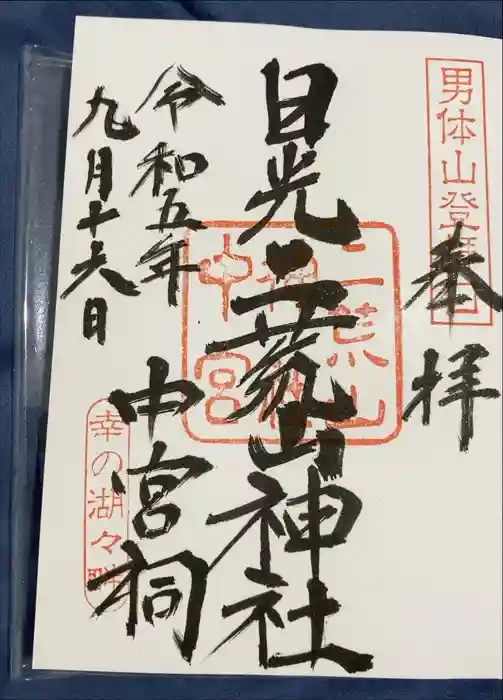 奉拝
男体山登拝口
日光二荒山神社
二荒山
神社
中宮祠
中宮祠
令和五年
九月十六日
幸の湖々畔